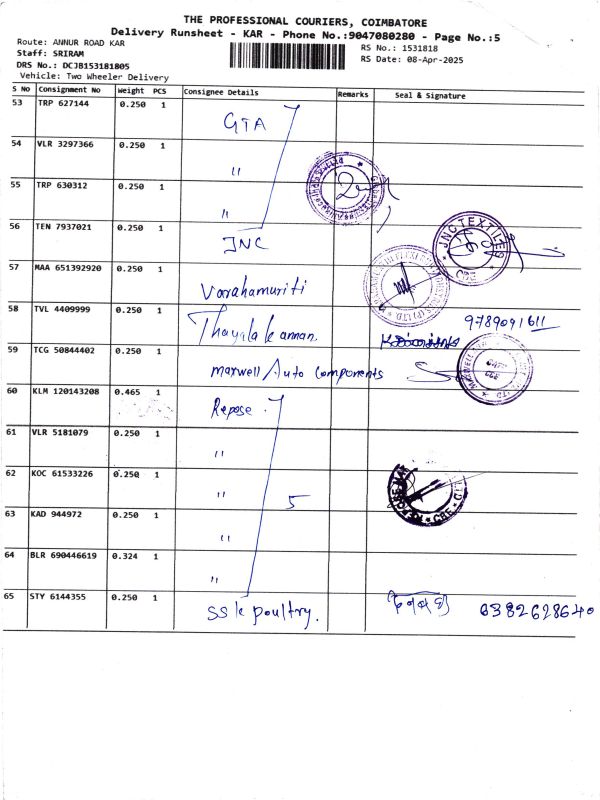 THE PROFESSIONAL COURIERS, COIMBATORE
Delivery Runsheet - KAR - Phone No.:9047080280 - Page No.:5
Route: ANNUR ROAD KAR
RS No.: 1531818
Staff: SRIRAM
RS Date: 08-Apr-2025
DRS No.: DCJB153181805
Vehicle: Two Wheeler Delivery
S No Consignment No Weight PCS Consignee Details Remarks Seal & Signature
53 TRP 627144 0.250 1 GTA
54 VLR 3297366 0.250 1 "
55 TRP 630312 0.250 1 "
56 TEN 7937021 0.250 1 JNC
JNC TEXTILES CBE
57 MAA 651392920 0.250 1 Varahamuriti
58 TVL 4409999 0.250 1 Thayalakannan. 9789091611
59 TCG 50844402 0.250 1 maxwell Auto Components
MAXWELL
60 KLM 120143208 0.465 1 Repose
61 VLR 5181079 0.250 1 "
62 KOC 61533226 0.250 1 " 5
CBE
63 KAD 944972 0.250 1 "
64 BLR 690446619 0.324 1 "
65 STY 6144355 0.250 1 SSK poultry. 6382628640